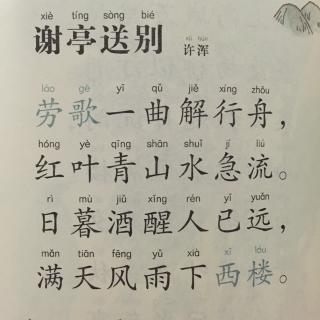 xiè tíng sòng bié
谢亭送别
xǔ hún
许浑
láo gē yī qǔ jiě xíng zhōu
劳歌一曲解行舟，
hóng yè qīng shān shuǐ jí liú
红叶青山水急流。
rì mù jiǔ xǐng rén yǐ yuǎn
日暮酒醒人已远，
mǎn tiān fēng yǔ xià xī lóu
满天风雨下西楼。